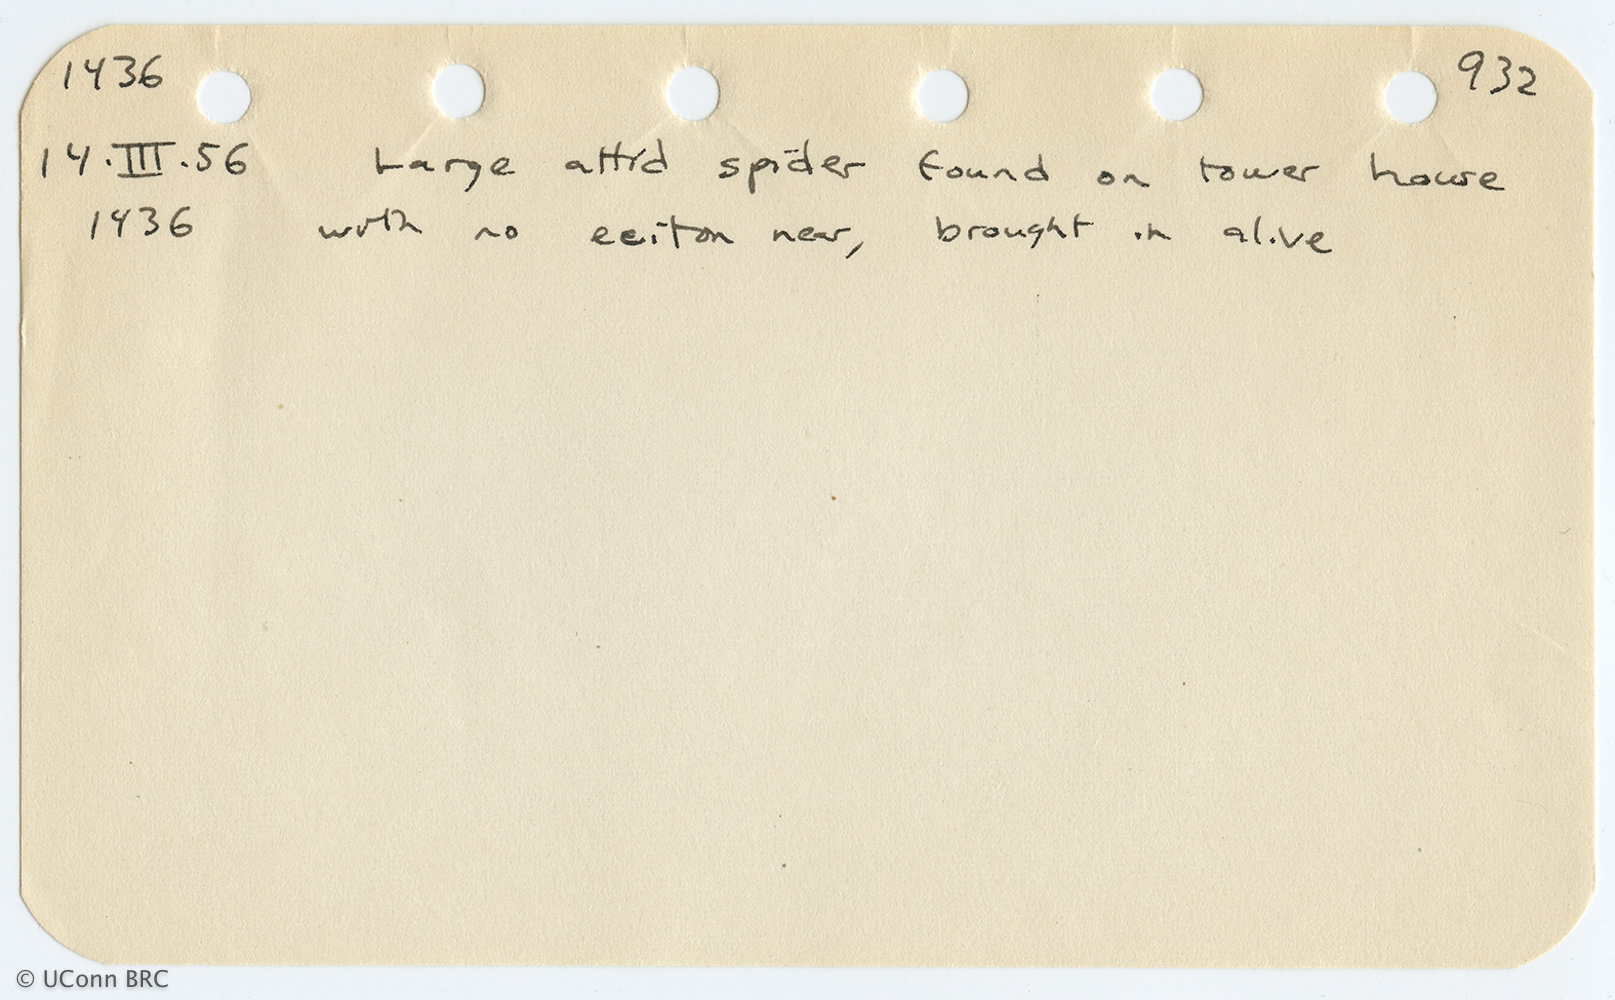 1436 932
14.III.56 Large attid spider found on tower house
1436 with no eciton near, brought in alive
© UConn BRC